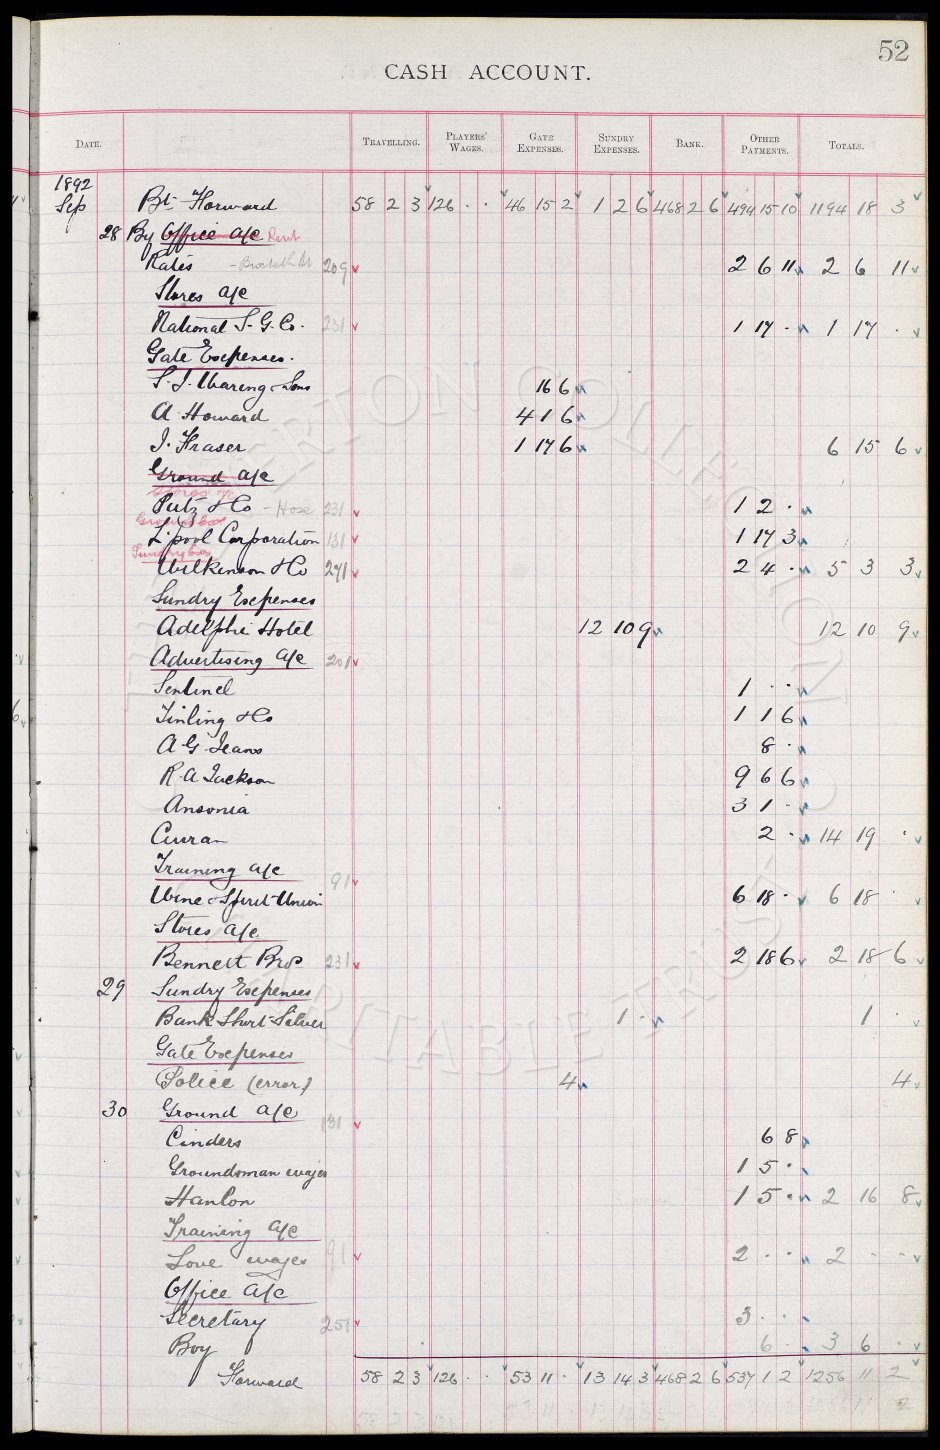 52
CASH ACCOUNT.
DATE. TRAVELLING. PLAYERS' WAGES. GATE EXPENSES. SUNDRY EXPENSES. BANK. OTHER PAYMENTS. TOTALS.
1892
Sep Bt Forward 58 2 3 126 . . 46 15 2 1 2 6 468 2 6 494 15 10 1194 18 3
28 By Office a/c Rent
Rates 209 2 6 11 2 6 11
Stores a/c
National S. G. Co. 231 1 17 . 1 17 .
Gate Expenses.
S. J. Waring & Sons 16 6
A. Howard 4 1 6
J. Fraser 1 17 6 6 15 6
Ground a/c
Stores a/c
Putz & Co - Hose 231 1 2 .
Ground
L'pool Corporation 131 1 17 3
Sundry
Wilkinson & Co 271 2 4 . 5 3 3
Sundry Expenses
Adelphi Hotel 12 10 9 12 10 9
Advertising a/c 201
Sentinel 1 . .
Tinling & Co 1 1 6
A. G. Jeans 8 .
R. A Jackson 9 6 6
Ansonia 3 1 .
Curran 2 . 14 19 .
Training a/c 91
Wine & Spirit Union 6 18 . 6 18 .
Stores a/c
Bennett Bros 231 2 18 6 2 18 6
29 Sundry Expenses
Bank Short Silver 1 . 1 .
Gate Expenses
Police (error) 4 4
30 Ground a/c 131
Cinders 6 8
Groundsman wages 1 5 .
Hanlon 1 5 . 2 16 8
Training a/c
Love wages 91 2 . . 2 . .
Office a/c
Secretary 251 3 . .
Boy 6 . 3 6 .
Forward 58 2 3 126 . . 53 11 . 13 14 3 468 2 6 537 1 2 1256 11 2
EVERTON COLLECTION
CHARITABLE TRUST